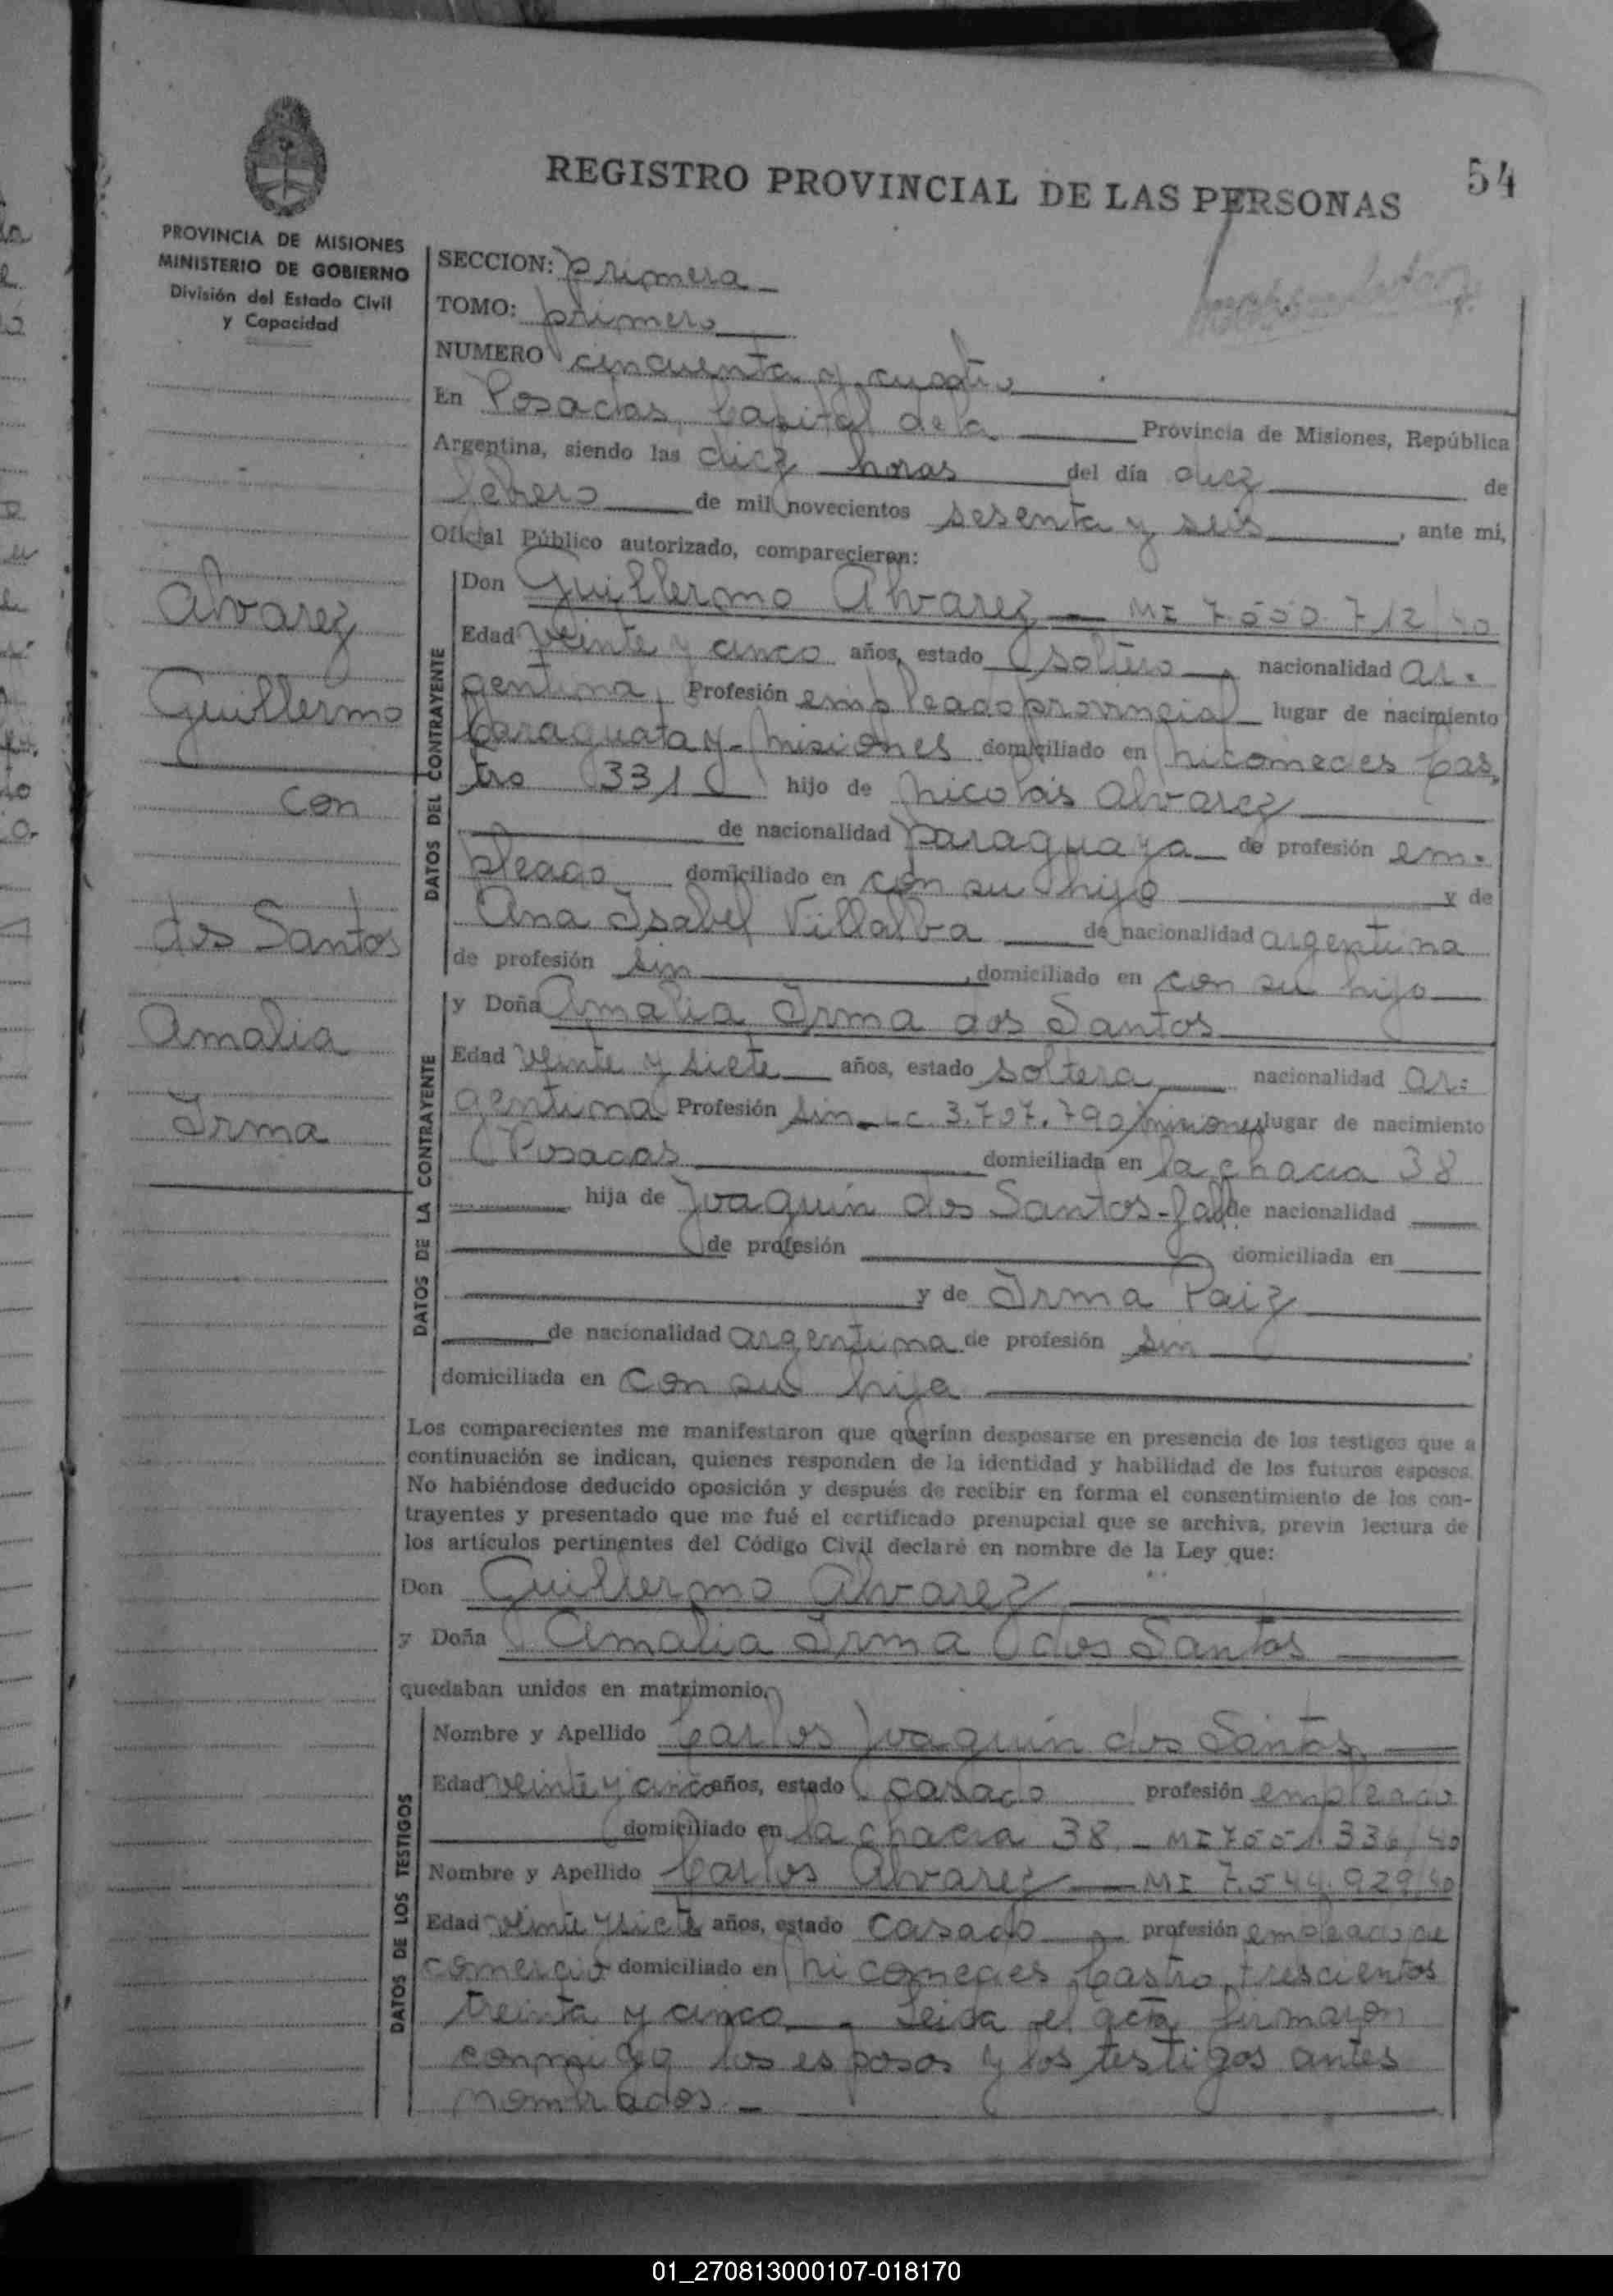 54
REGISTRO PROVINCIAL DE LAS PERSONAS
PROVINCIA DE MISIONES
MINISTERIO DE GOBIERNO
División del Estado Civil
y Capacidad
SECCION: primera
TOMO: primero
NUMERO cincuenta y cuatro
En Posadas, Capital de la Provincia de Misiones, República
Argentina, siendo las diez horas del día diez de
febrero de mil novecientos sesenta y seis, ante mi,
Oficial Público autorizado, comparecieron:
Alvarez
Guillermo
con
dos Santos
Amalia
Irma
DATOS DEL CONTRAYENTE
Don Guillermo Alvarez - MI 7.550.712/40
Edad veinte y cinco años, estado soltero, nacionalidad ar-
gentina, Profesión empleado provincial lugar de nacimiento
Caraguatay - Misiones domiciliado en Nicomedes Cas
tro 331 hijo de Nicolás Alvarez
de nacionalidad paraguaya de profesión em-
pleado domiciliado en con su hijo y de
Ana Isabel Villalba de nacionalidad argentina
de profesión sin, domiciliado en con su hijo
DATOS DE LA CONTRAYENTE
y Doña Amalia Irma dos Santos
Edad veinte y siete años, estado soltera nacionalidad ar-
gentina Profesión sin - LC. 3.707.790/Misiones lugar de nacimiento
Posadas domiciliada en la chacra 38
hija de Joaquín dos Santos - fall de nacionalidad
de profesión domiciliada en
y de Irma Paiz
de nacionalidad argentina de profesión sin,
domiciliada en con su hija
Los comparecientes me manifestaron que querían desposarse en presencia de los testigos que a
continuación se indican, quienes responden de la identidad y habilidad de los futuros esposos.
No habiéndose deducido oposición y después de recibir en forma el consentimiento de los con-
trayentes y presentado que me fué el certificado prenupcial que se archiva, previa lectura de
los artículos pertinentes del Código Civil declaré en nombre de la Ley que:
Don Guillermo Alvarez
y Doña Amalia Irma dos Santos
quedaban unidos en matrimonio.
DATOS DE LOS TESTIGOS
Nombre y Apellido Carlos Joaquín dos Santos
Edad veinte y cinco años, estado casado profesión empleado
domiciliado en la chacra 38 - MI 7.551.336/40
Nombre y Apellido Carlos Alvarez - MI 7.544.929/40
Edad veinte y siete años, estado casado, profesión empleado de
comercio domiciliado en Nicomedes Castro trescientos
treinta y cinco. Leida el acta firmaron
conmigo los esposos y los testigos antes
nombrados.-
01_270813000107-018170